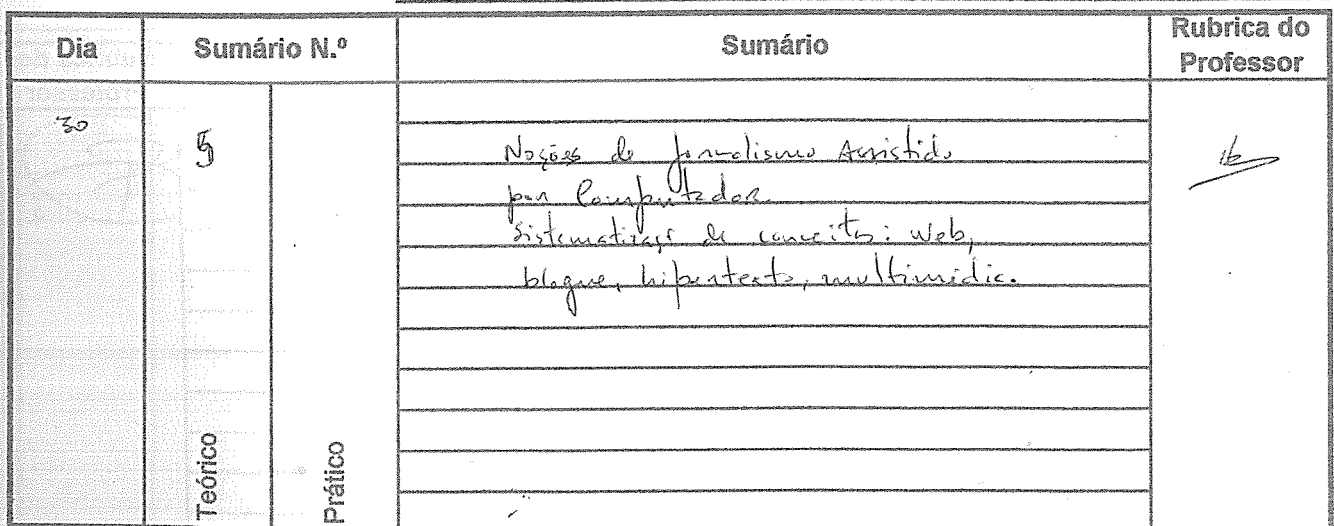 Dia
Sumário N.º
Sumário
Rubrica do
Professor
30
5
Noções de Jornalismo Assistido
por Computador.
Sistematizaçã de conceitos: Web,
blogue, hipertexto, multimédia.
Teórico
Prático